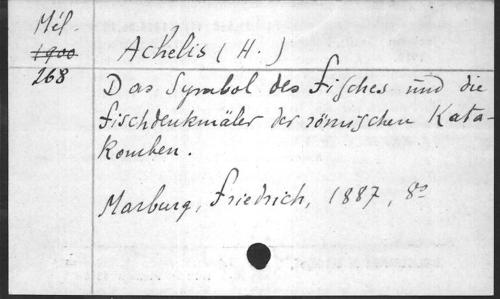 Mél.
1900
268
Achelis (H.)
Das Symbol des Fisches und die
Fischdenkmäler der römischen Kata-
komben.
Marburg, Friedrich, 1887, 8°